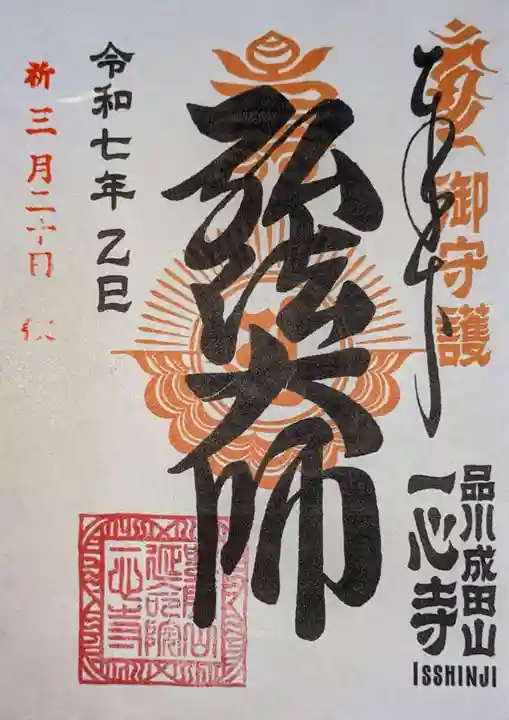 奉拝
御守護
弘法大師
品川成田山
一心寺
ISSHINJI
令和七年乙巳
祈 三月二十日
一心寺